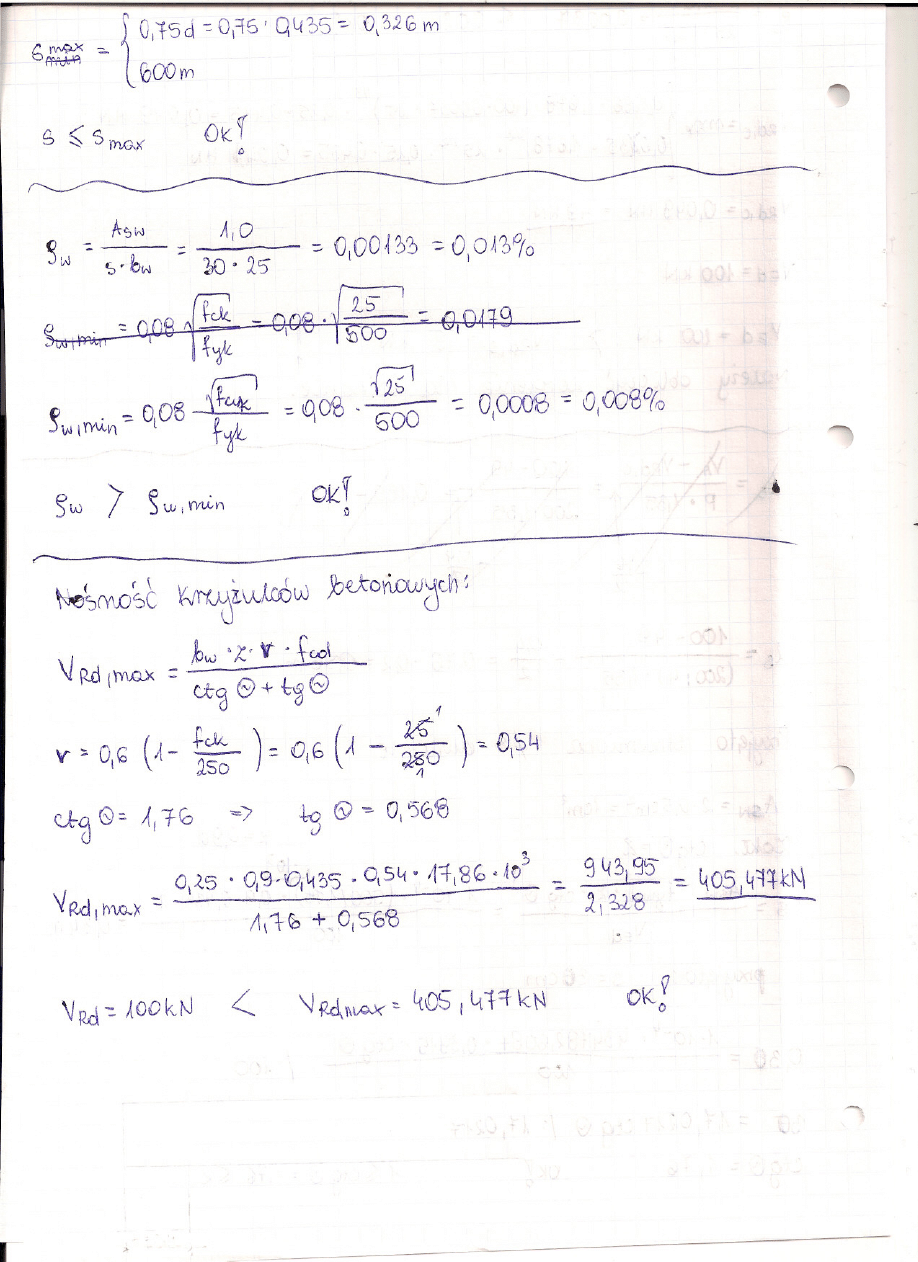 s max min = { 0,75d = 0,75 · 0,435 = 0,326 m
600m
s ≤ s max OK!
ρw = Asw / s·bw = 1,0 / 30·25 = 0,00133 = 0,013%
ρw,min = 0,08 √(fck/fyk) = 0,08 · √(25/500) = 0,0179
ρw,min = 0,08 √fck / fyk = 0,08 · √25 / 500 = 0,0008 = 0,008%
ρw > ρw,min OK!
Nośność krzyżulców betonowych:
VRd,max = bw · z · ν · fcd / ctg Θ + tg Θ
ν = 0,6 (1 - fck/250) = 0,6 (1 - 25/250) = 0,54
ctg Θ = 1,76 => tg Θ = 0,568
VRd,max = 0,25 · 0,9 · 0,435 · 0,54 · 17,86 · 10³ / 1,76 + 0,568 = 943,95 / 2,328 = 405,477kN
VRd = 100kN < VRdmax = 405,477kN OK!